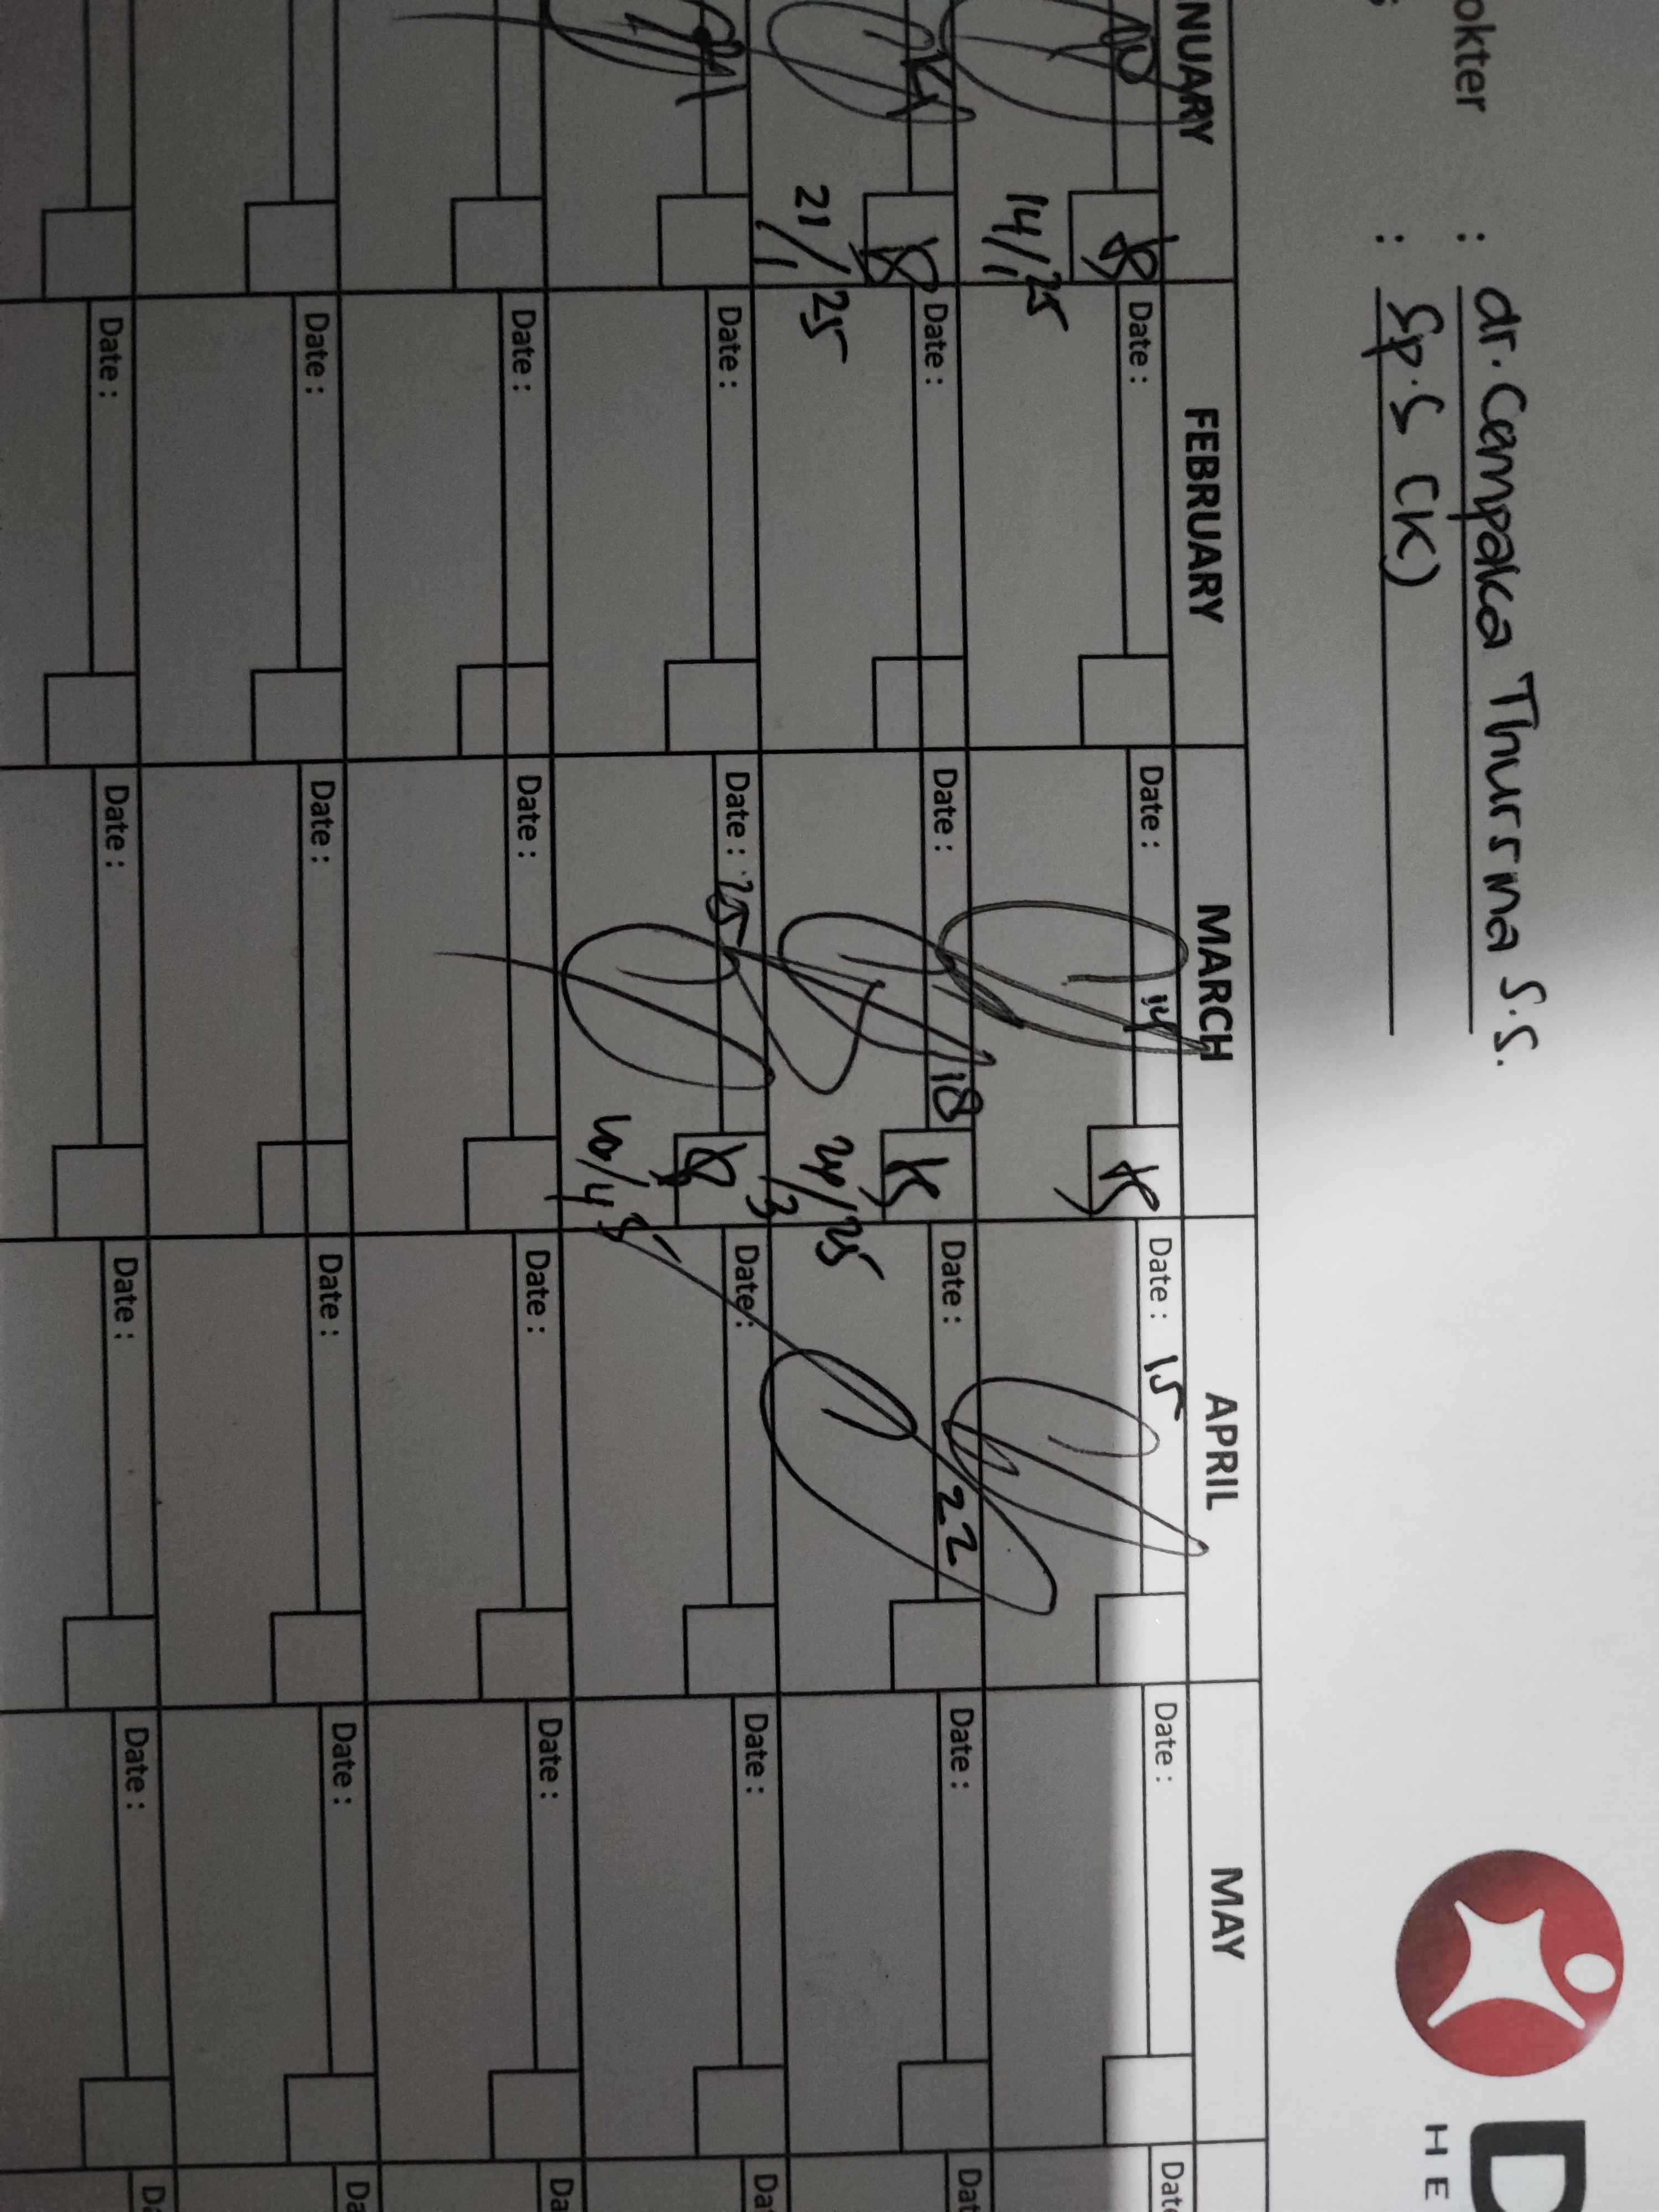 okter : dr. Cempaka Thursina S.S.
: Sp.S (K)
D
HE
NUARY FEBRUARY MARCH APRIL MAY
Date : Date : 14 Date : 15 Date : Date
14/1 25
Date : Date : 18 Date : 22 Date : Dat
21/1 25 3
Date : Date : 25 Date : Date : Da
Date : Date : Date : Date : Da
Date : Date : Date : Date : Da
Date : Date : Date : Date : Da